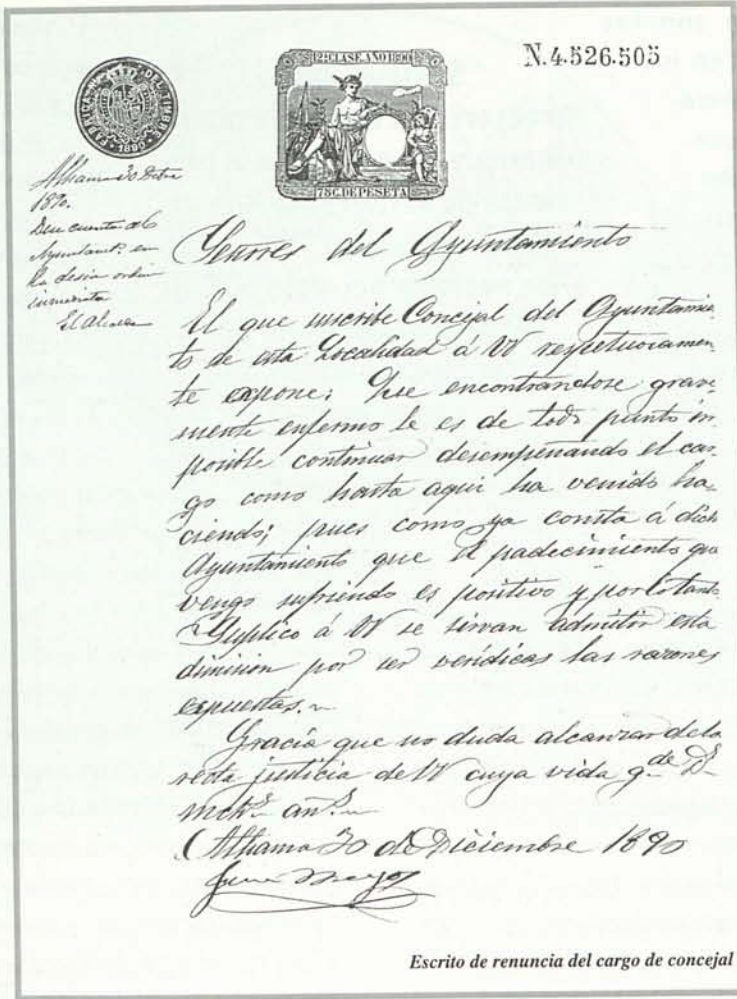 FABRICA NACIONAL DEL TIMBRE
1890
12ª CLASE. AÑO 1890
75 C. DE PESETA
N.4.526.505
Alhama 30 Dbre
1890.
Dese cuenta al
Ayuntamto. en
la sesion ordin
inmediata
El Alcalde
Señores del Ayuntamiento
El que suscribe Concejal del Ayuntamien-
to de esta Localidad á VV respetuosamen-
te expone: Que encontrandose grave-
mente enfermo le es de todo punto im-
posible continuar desempeñando el car-
go como hasta aqui ha venido ha-
ciendo; pues como ya consta á dicho
Ayuntamiento que el padecimiento que
vengo sufriendo es positivo y por lo tanto
Suplico á VV se sirvan admitir esta
dimision por ser veridicas las razones
expuestas.
Gracia que no duda alcanzar de la
recta justicia de VV cuya vida gde. Ds.
mchs. ans.
Alhama 30 de Diciembre 1890
Escrito de renuncia del cargo de concejal